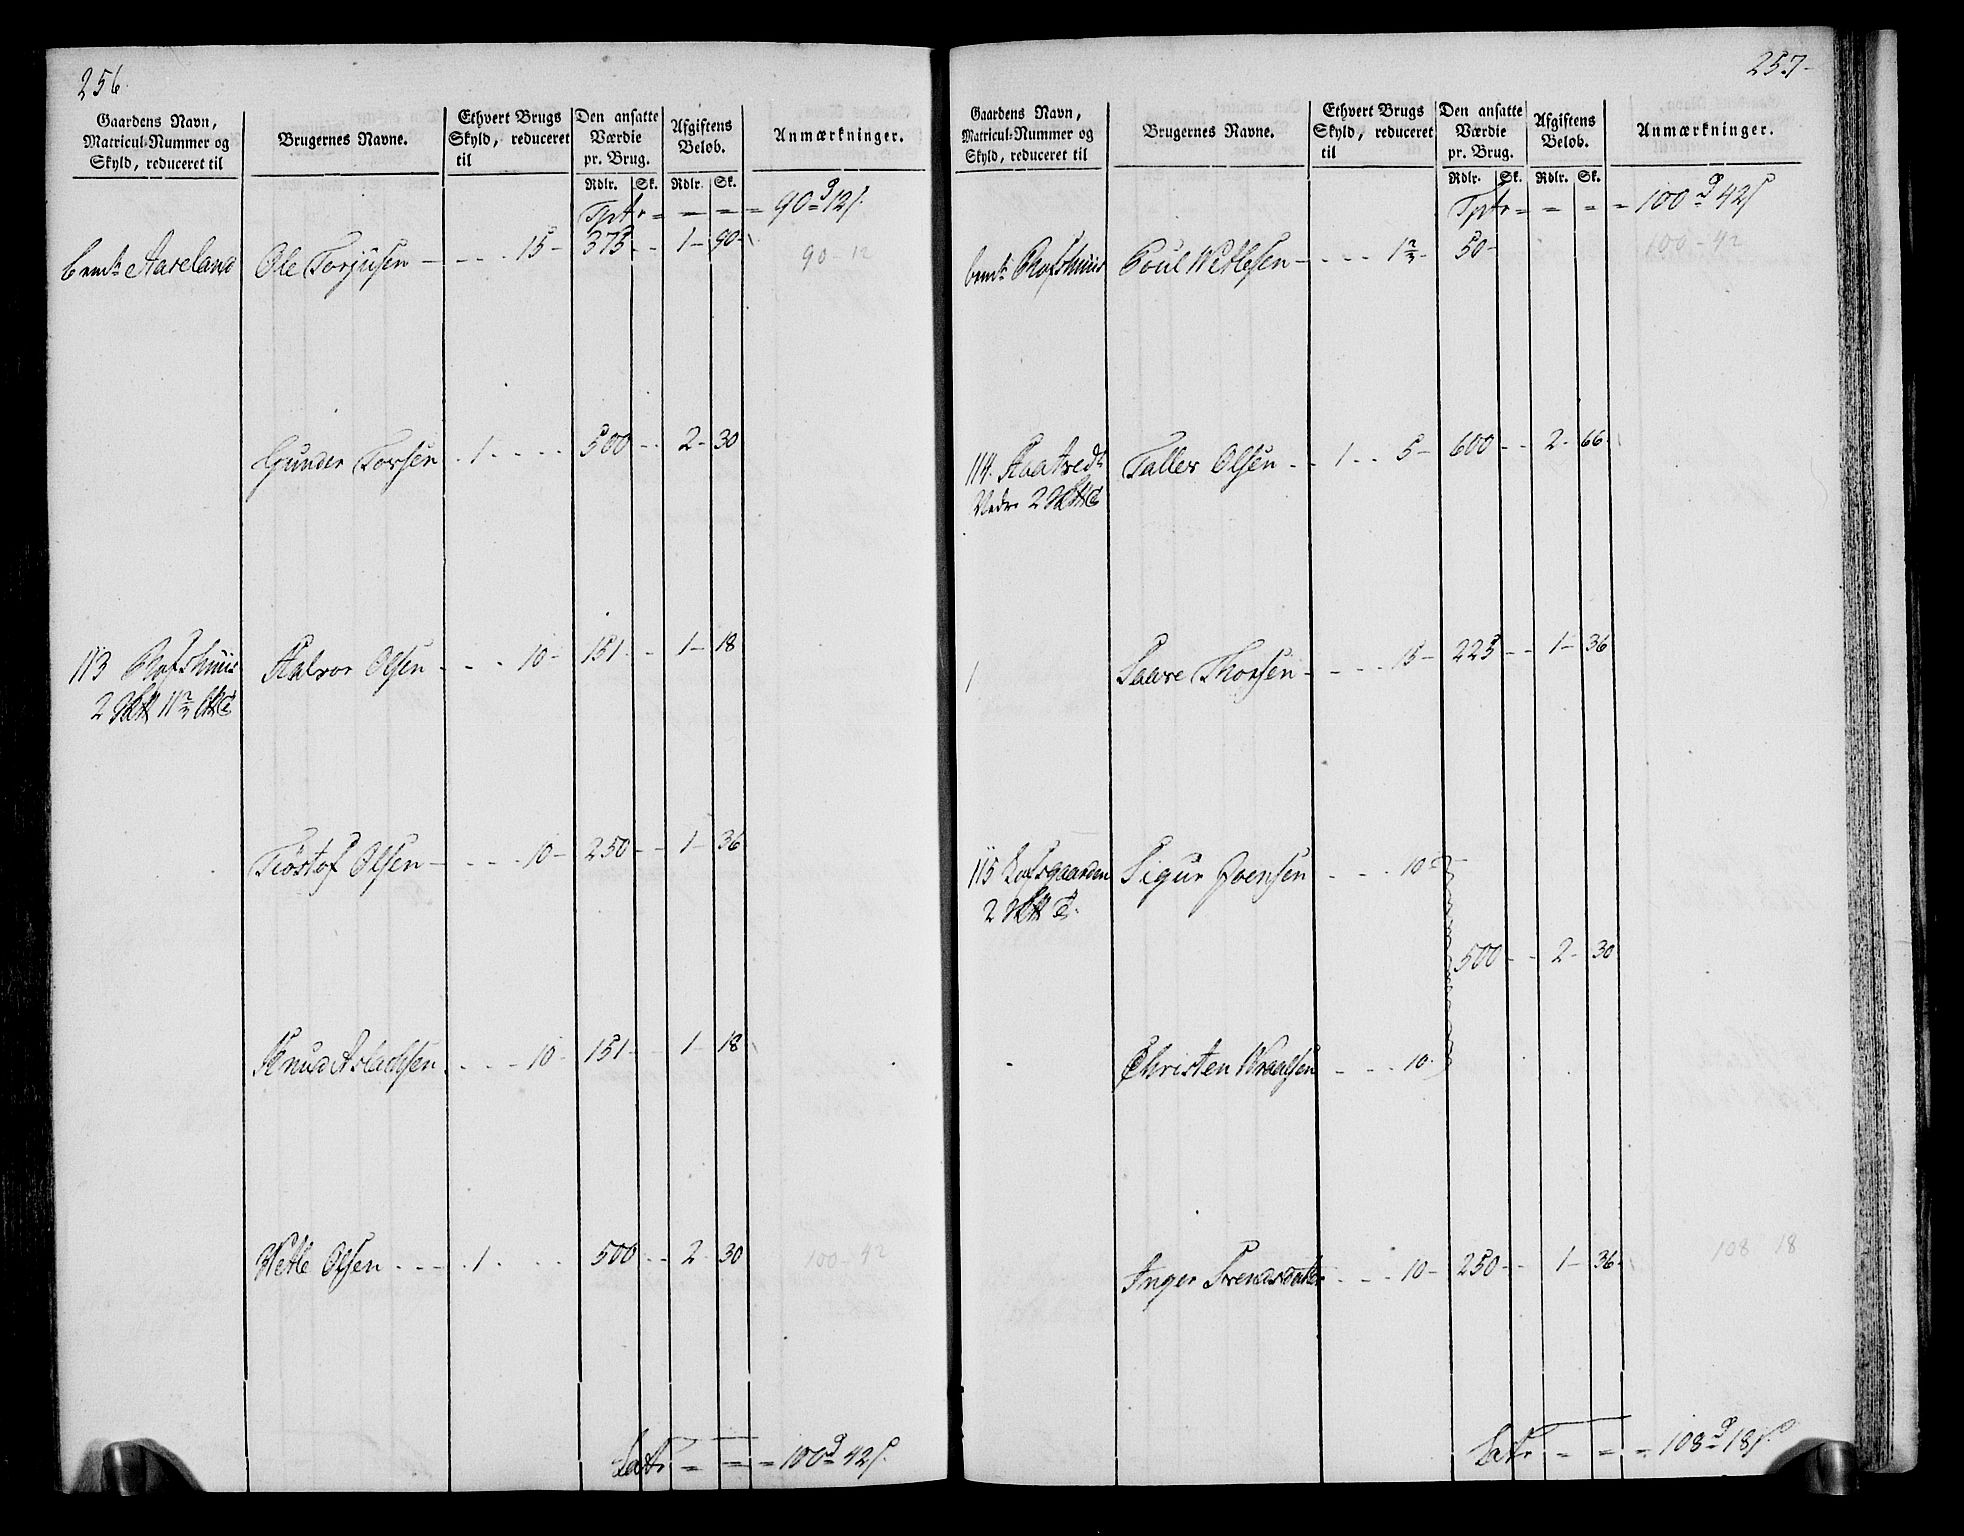 256.
Gaardens Navn, Matricul-Nummer og Skyld, reduceret til
Brugernes Navne.
Ethvert Brugs Skyld, reduceret til
Den ansatte Værdie pr. Brug.
Afgiftens Beløb.
Anmærkninger.
Rdlr. Sk. Rdlr. Sk.
Tptr = = = = 90 d 12 s.
bemte Aareland Ole Torjusen - - - - 15 - 375 - - 1 - 90 -
90 - 12
Gunder Torsen . 1 - - - - 500 - - 2 - 30
113 Halvor Olsen - - - 10 - 151 - - 1 - 18
2
Tiøstof Olsen - - - - 10 - 250 - - 1 - 36
Knud Aslachsen - - - 10 - 151 - - 1 - 18
Wetle Olsen - - - . 1 - - - 500 - - 2 - 30
100 - 42
Latr = = = 100 d 42 s.
257 -
Gaardens Navn, Matricul-Nummer og Skyld, reduceret til
Brugernes Navne.
Ethvert Brugs Skyld, reduceret til
Den ansatte Værdie pr. Brug.
Afgiftens Beløb.
Anmærkninger.
Rdlr. Sk. Rdlr. Sk.
Tptr = = = = 100 d 42 s
bemte Poul Wetlesen - - - - 50 -
100 - 42
114. Taller Olsen - - 1 - - 5 - 600 - - 2 - 66
Nedr. 2
Saave Thorsen - - - - 15 - 225 - - 1 - 36
115 Sigur Joensen - - - 10
2
500 - - 2 - 30
Christen Wraalsen - - - 10
Inger Svendsdatter - - - 10 - 250 - - 1 - 36 -
108 18
Latr = = = 108 d 18 s.